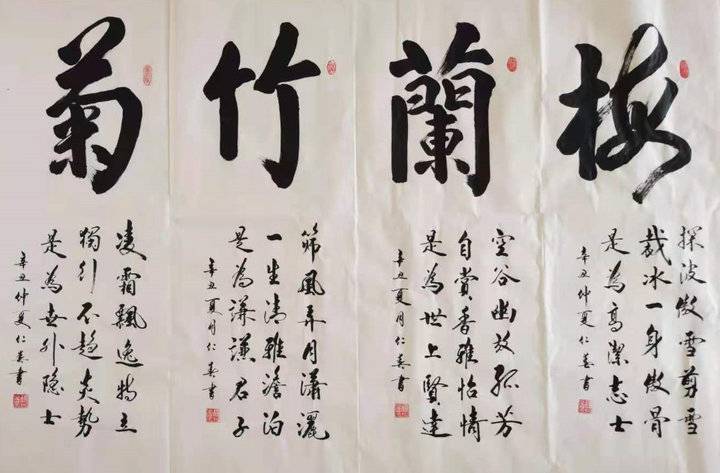 梅
探波傲雪剪雪
裁冰一身傲骨
是為高潔志士
辛丑仲夏仁春書
蘭
空谷幽放孤芳
自賞香雅怡情
是為世上賢達
辛丑夏月仁春書
竹
篩風弄月瀟灑
一生清雅澹泊
是為謙謙君子
辛丑夏月仁春書
菊
凌霜飄逸特立
獨行不趨炎勢
是為世外隐士
辛丑仲夏仁春書